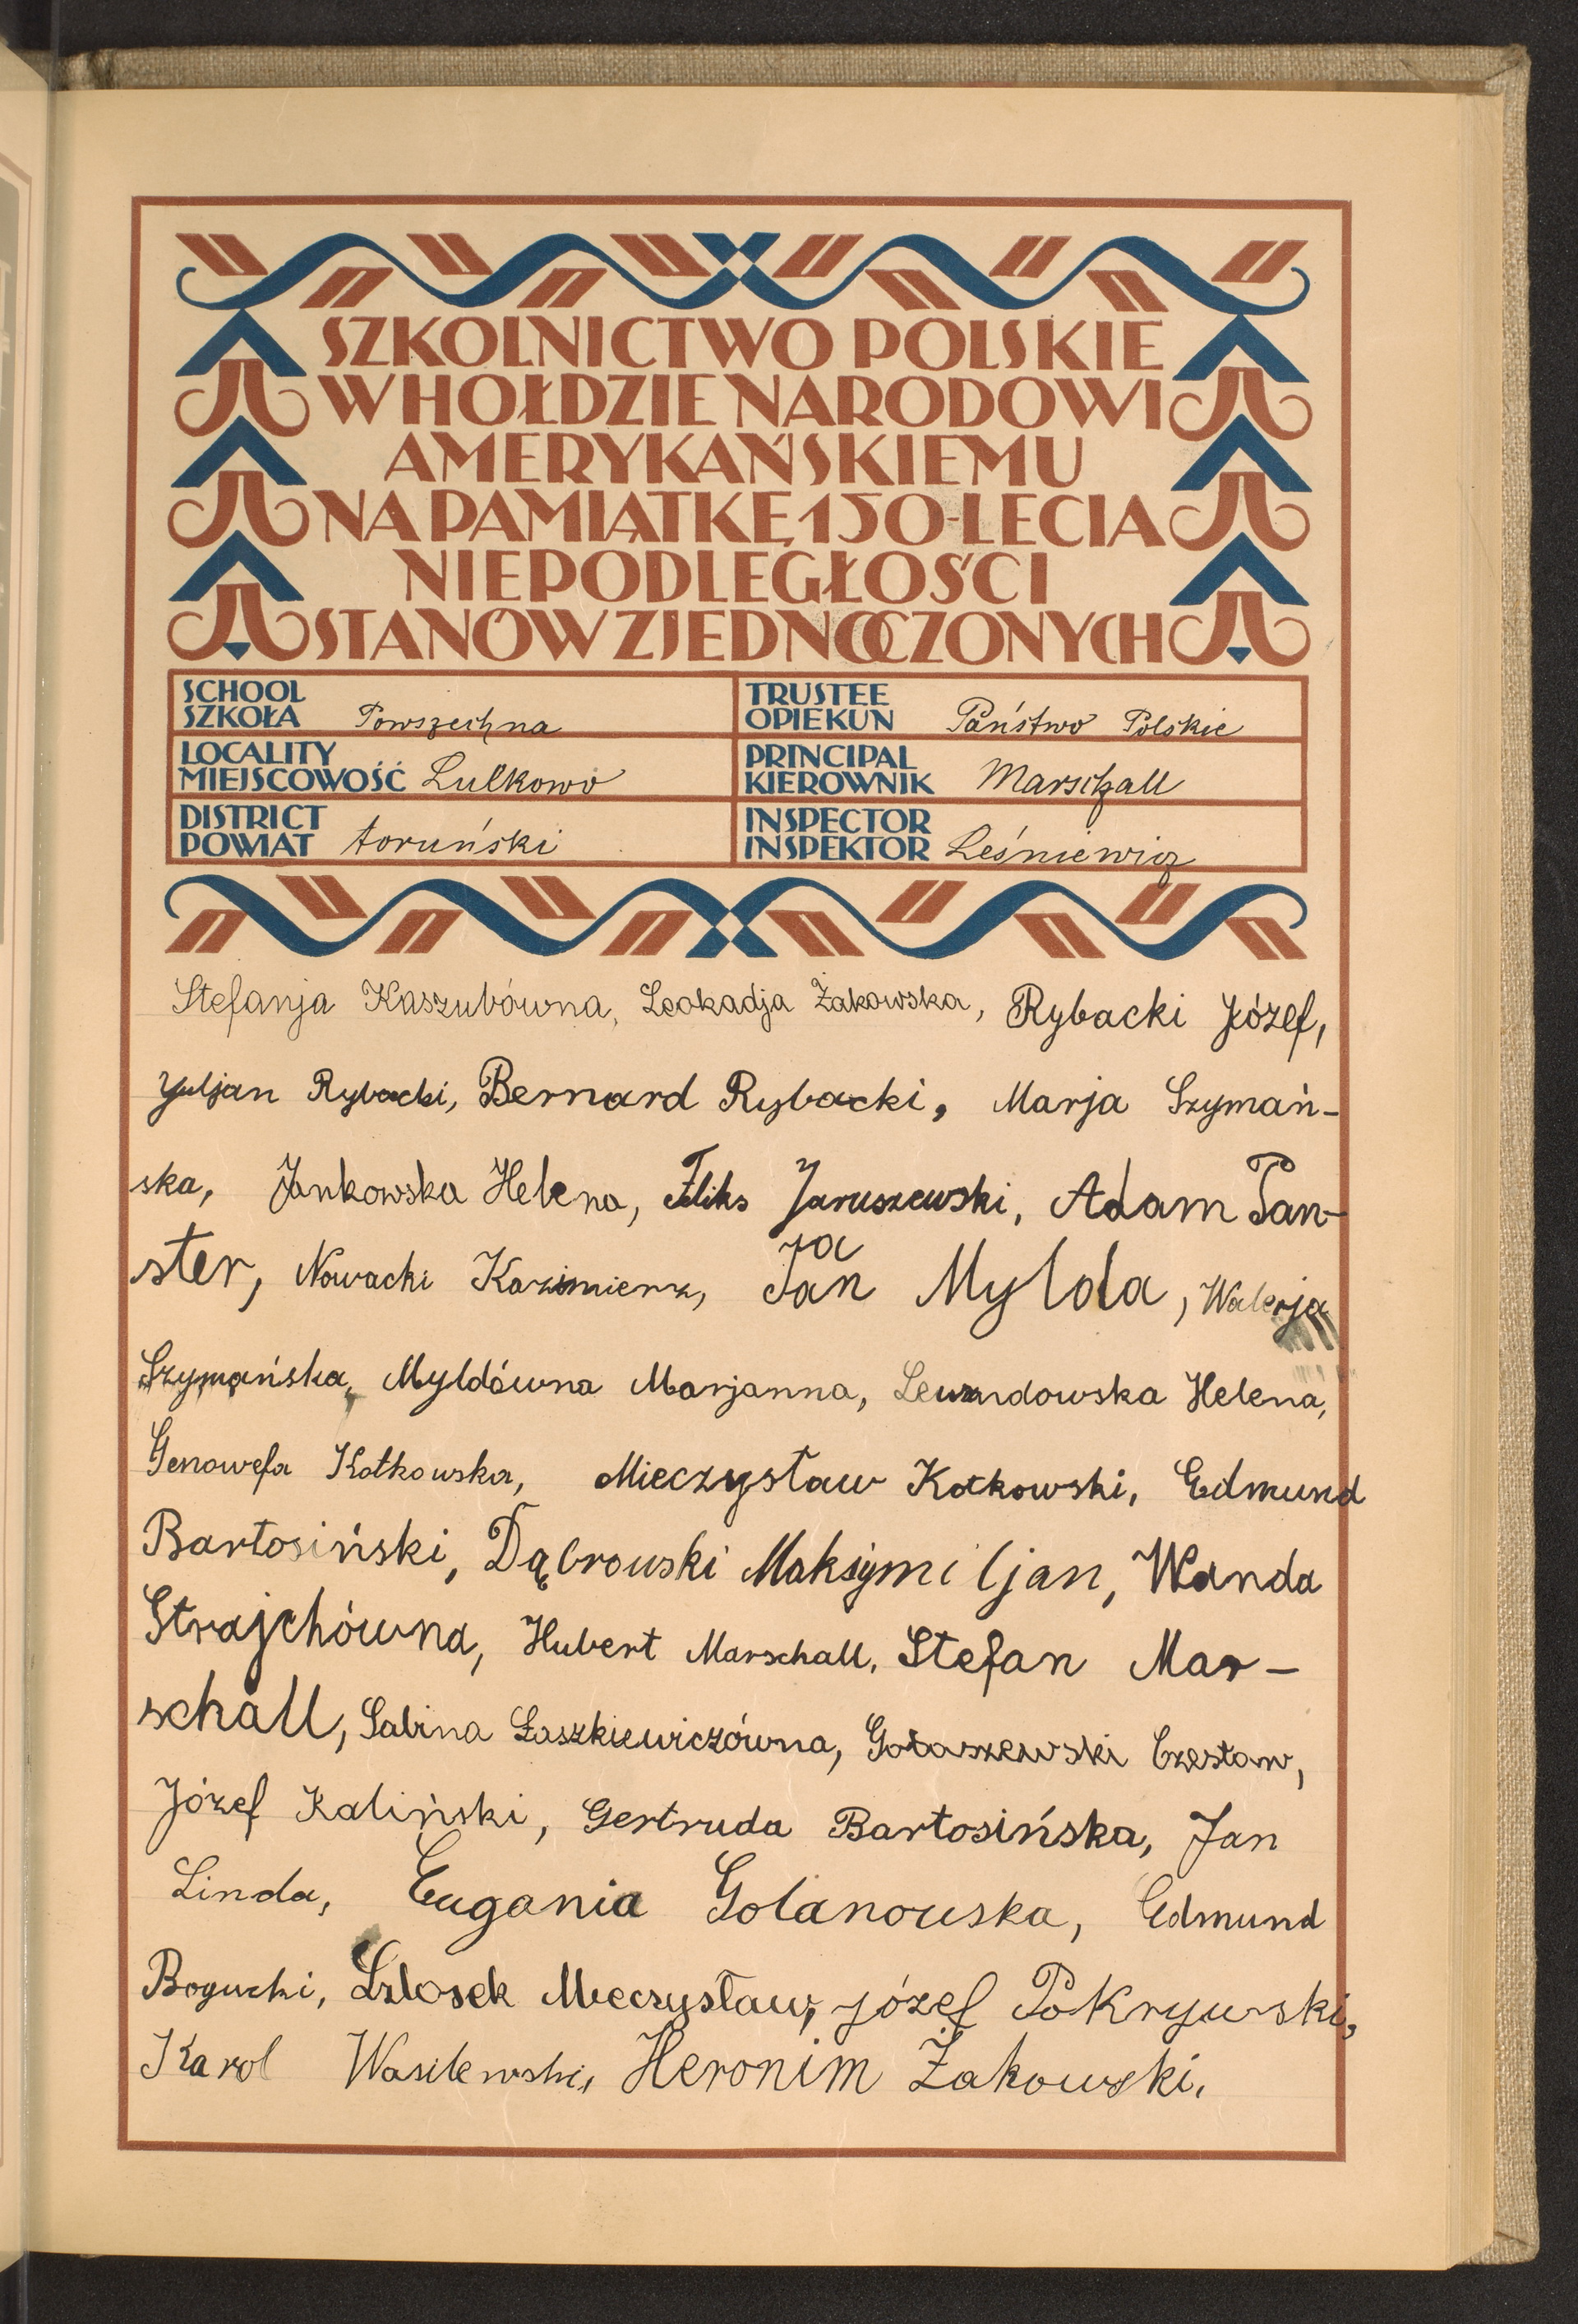 SZKOLNICTWO POLSKIE
W HOŁDZIE NARODOWI
AMERYKAŃSKIEMU
NA PAMIĄTKĘ 150-LECIA
NIEPODLEGŁOŚCI
STANÓW ZJEDNOCZONYCH
SCHOOL
SZKOŁA Powszechna
TRUSTEE
OPIEKUN Państwo Polskie
LOCALITY
MIEJSCOWOŚĆ Lulkowo
PRINCIPAL
KIEROWNIK Marschall
DISTRICT
POWIAT toruński
INSPECTOR
INSPEKTOR Leśniewicz
Stefanja Kaszubówna, Leokadja Żakowska, Rybacki Józef,
Juljan Rybacki, Bernard Rybacki, Marja Szymań-
ska, Jankowska Helena, Feliks Jaruszewski, Adam Pan-
ster, Nowacki Kazimierz, Jan Mylda, Walerja
Szymańska, Myldówna Marjanna, Lewandowska Helena,
Genowefa Kotkowska, Mieczysław Kotkowski, Edmund
Bartosiński, Dąbrowski Maksymiljan, Wanda
Strajchówna, Hubert Marschall, Stefan Mar-
schall, Sabina Łaszkiewiczówna, Gołaszewski Czesław,
Józef Kaliński, Gertruda Bartosińska, Jan
Linda, Eugania Golanowska, Edmund
Bogucki, Mieczysław, józef Pokrywski,
Karol Wasilewski, Heronim Żakowski.